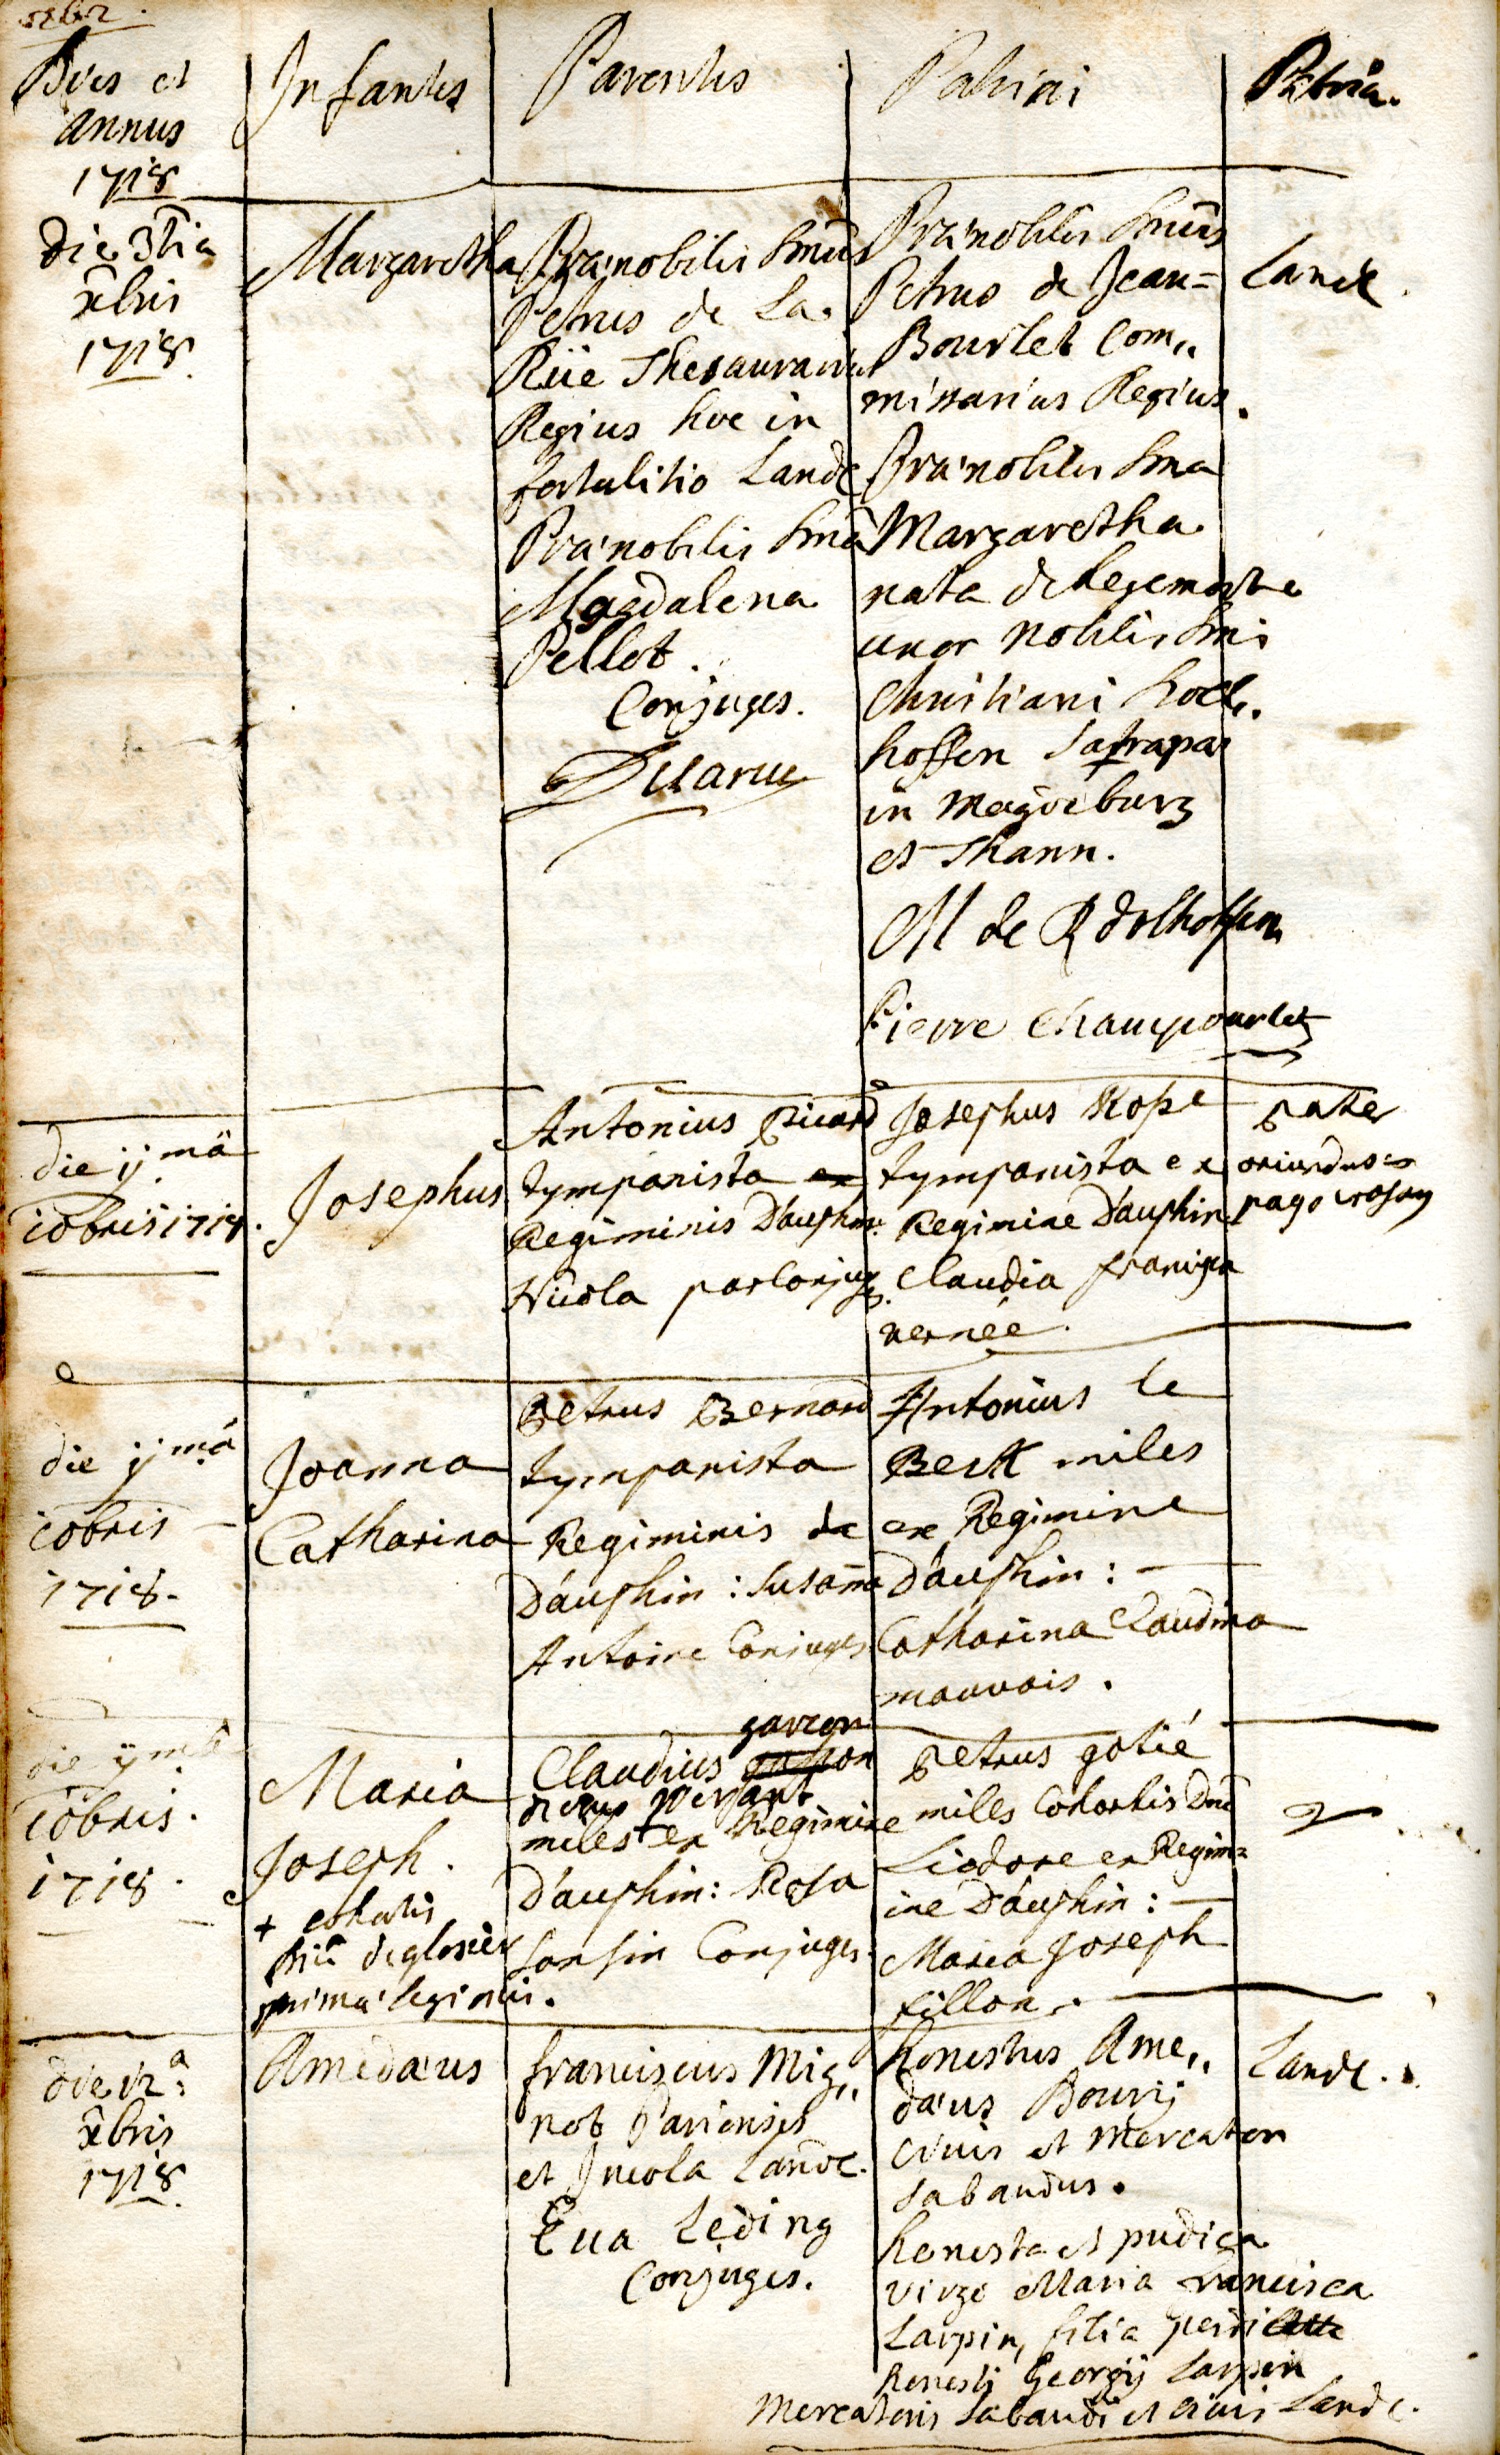 Dies et
annus
1718
Infantes
Parentes
Patrini
Patria.
die 3tia
xbris
1718
Margaretha
Prænobilis Dnus
Petrus de La
Rüe Thesaurarius
Regius hoc in
fortalitio Landc
Prænobilis Dna
Magdalena
Pellot.
Conjuges.
Delarue
Prænobilis Dnus
Petrus de Jean=
Bourlet Com,,
missarius Regius.
Prænobilis Dna
Margaretha
nata de Regemorte
uxor nobilis Dni
Christiani
hoffen Satrapæ
in Magdeburg
et Thann.
M de
Pierre Champourlet
Landc.
die ij mâ
iobris 1718.
Josephus
Antonius Picard
tympanista
Regiminis D'auphin:
Nicola
Josephus Kope
tympanista ex
Regimine D'auphin
Claudia Francisca
vernée.
pater
oriundus ex
pago
die ij mâ
iobris
1718.
Joanna
Catharina
Petrus Bernard
tympanista
Regiminis de
D'auphin: Susaña
Antoine Conjuges
Antonius le
Beck miles
ex Regimine
D'auphin:
Catharina Claudina
mauvais.
die ij mâ
iobris.
1718
Maria
Joseph.
+ cohortis
Dni deglosier
primæ legionis.
garzon
Claudius
dictus
miles ex Regimine
D'auphin: Rosa
Sansin Conjuges.
Petrus gotié
miles Cohortis Dni
Liodore ex Regim=
ine D'auphin:
Maria Joseph
fillon.
die 12ª
xbris
1718
Amedæus
Franciscus Mig,,
not Pariensis
et Incola Landc.
Eva Leding
Conjuges.
honestus Ame,,
dæus Bourij
Civis et Mercator
Sabaudus.
honesta et pudica
virgo Maria Francisca
Larpin, filia
honesti Georgij Larpin
Mercatoris Sabaudi et civis Landc.
Landc.